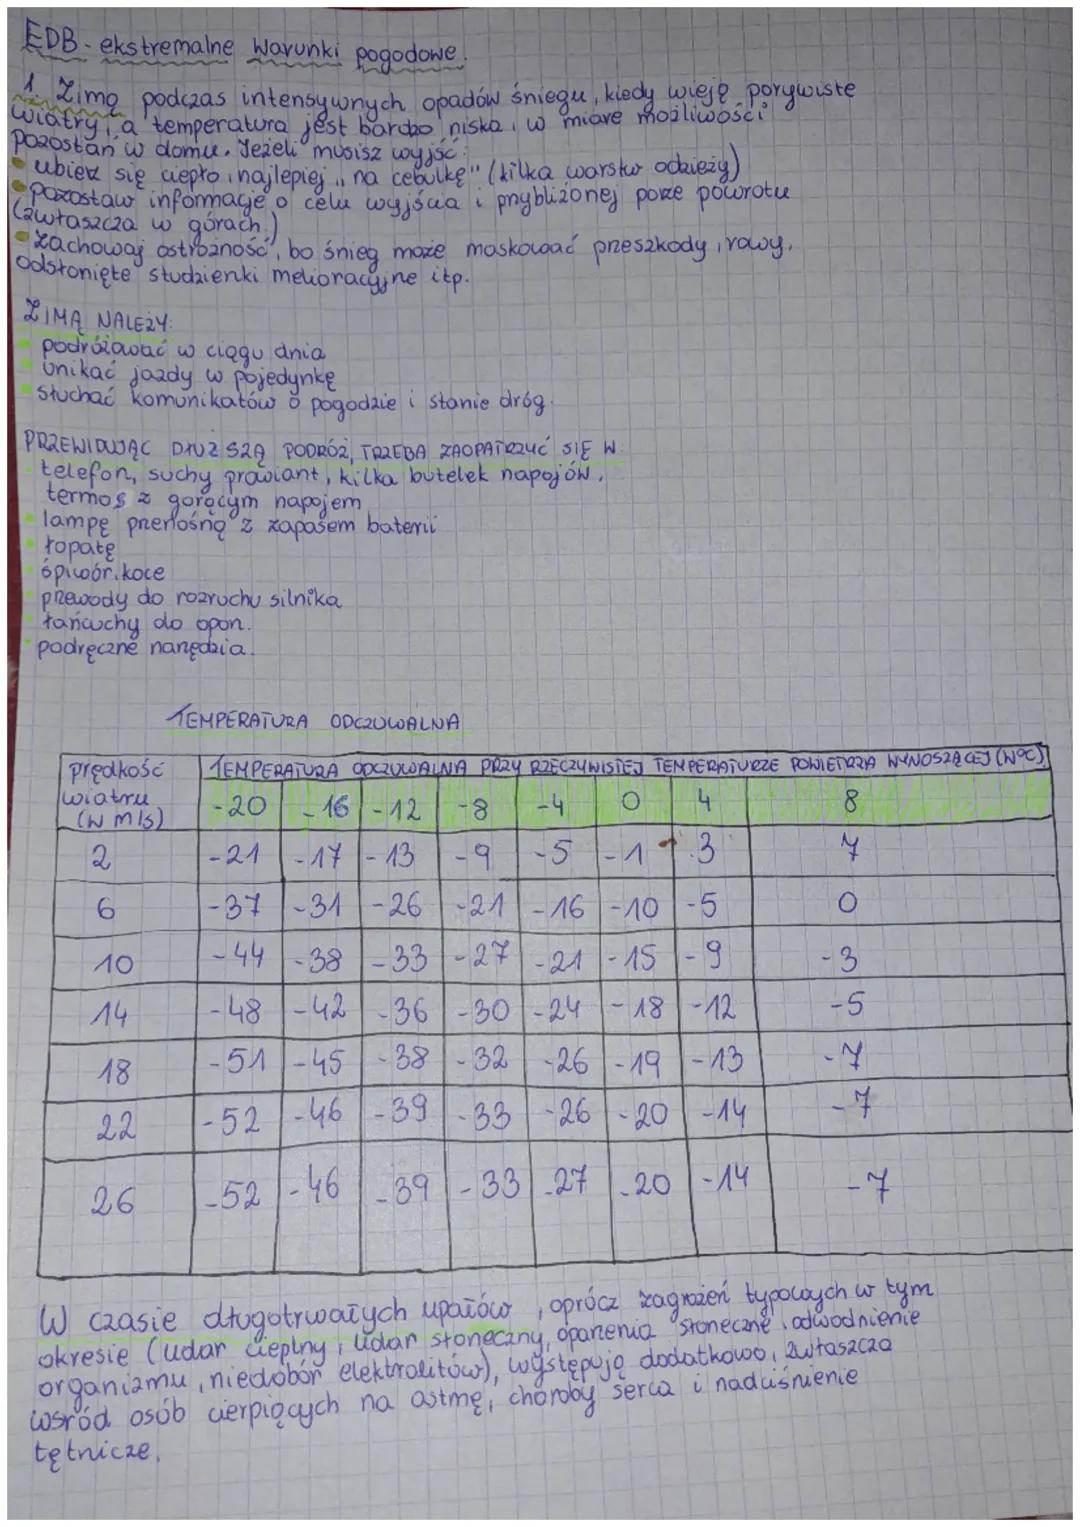 EDB - ekstremalne warunki pogodowe.
1. Zimą podczas intensywnych opadów śniegu, kiedy wieję porywiste
wiatry, a temperatura jest bardzo niska, w miare możliwości
pozostań w domu. Jeżeli musisz wyjść:
• ubierz się ciepło, najlepiej „na cebulkę" (kilka warstw odzieży)
• pozostaw informację o celu wyjścia i przybliżonej porze powrotu
(zwłaszcza w górach.)
• Zachowaj ostrożność, bo śnieg może maskować przeszkody, rowy,
odsłonięte studzienki melioracyjne itp.
ZIMĄ NALEŻY:
• podróżować w ciągu dnia
• unikać jazdy w pojedynkę
• Słuchać komunikatów o pogodzie i stanie dróg.
PRZEWIDUJĄC DŁUŻSZĄ PODRÓŻ, TRZEBA ZAOPATRZYĆ SIĘ W:
• telefon, suchy prowiant, kilka butelek napojów,
termos z gorącym napojem
• lampę przenośną z zapasem baterii
• łopatę
• śpiwór, koce
• przewody do rozruchu silnika
• łańcuchy do opon.
• podręczne narzędzia.
TEMPERATURA ODCZUWALNA
prędkość TEMPERATURA ODCZUWALNA PRZY RZECZYWISTEJ TEMPERATURZE POWIETRZA WYNOSZĄCEJ (W °C)
wiatru
(w m/s) -20 -16 -12 -8 -4 0 4 8
2 -21 -17 -13 -9 -5 -1 3 7
6 -37 -31 -26 -21 -16 -10 -5 0
10 -44 -38 -33 -27 -21 -15 -9 -3
14 -48 -42 -36 -30 -24 -18 -12 -5
18 -51 -45 -38 -32 -26 -19 -13 -7
22 -52 -46 -39 -33 -26 -20 -14 -7
26 -52 -46 -39 -33 -27 -20 -14 -7
W czasie długotrwałych upałów, oprócz zagrożeń typowych w tym
okresie (udar cieplny, udar słoneczny, oparzenia słoneczne, odwodnienie
organizmu, niedobór elektrolitów), występują dodatkowo, zwłaszcza
wśród osób cierpiących na astmę, choroby serca i naduśnienie
tętnicze.